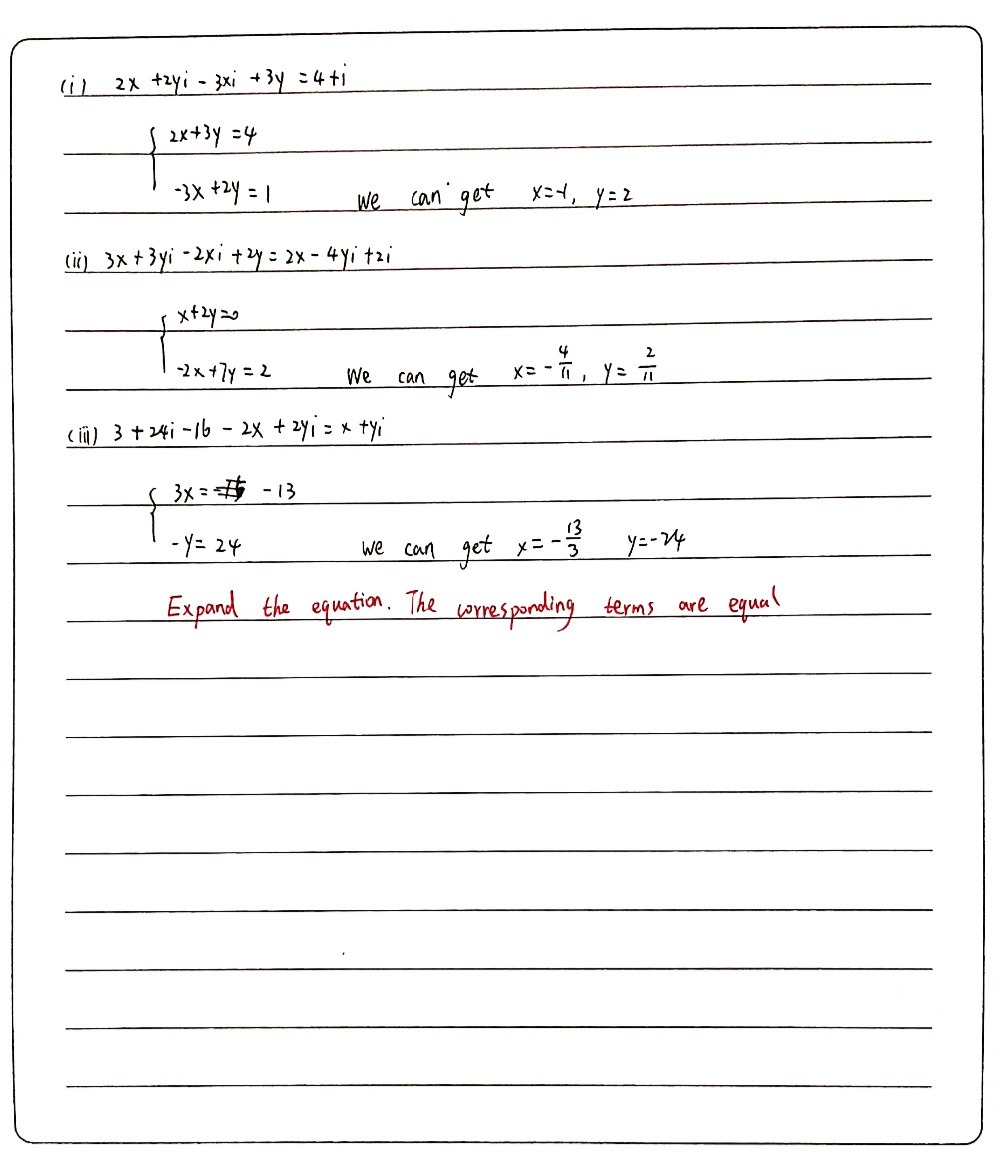 (i) 2x +2yi - 3xi +3y = 4+i
2x+3y = 4
-3x +2y = 1 We can get x=-1, y=2
(ii) 3x+3yi -2xi +2y = 2x - 4yi +2i
x+2y=0
-2x+7y = 2 We can get x= -4/11, y= 2/11
(iii) 3 + 24i -16 - 2x + 2yi = x +yi
3x = -13
-y= 24 We can get x= -13/3 y=-24
Expand the equation. The corresponding terms are equal